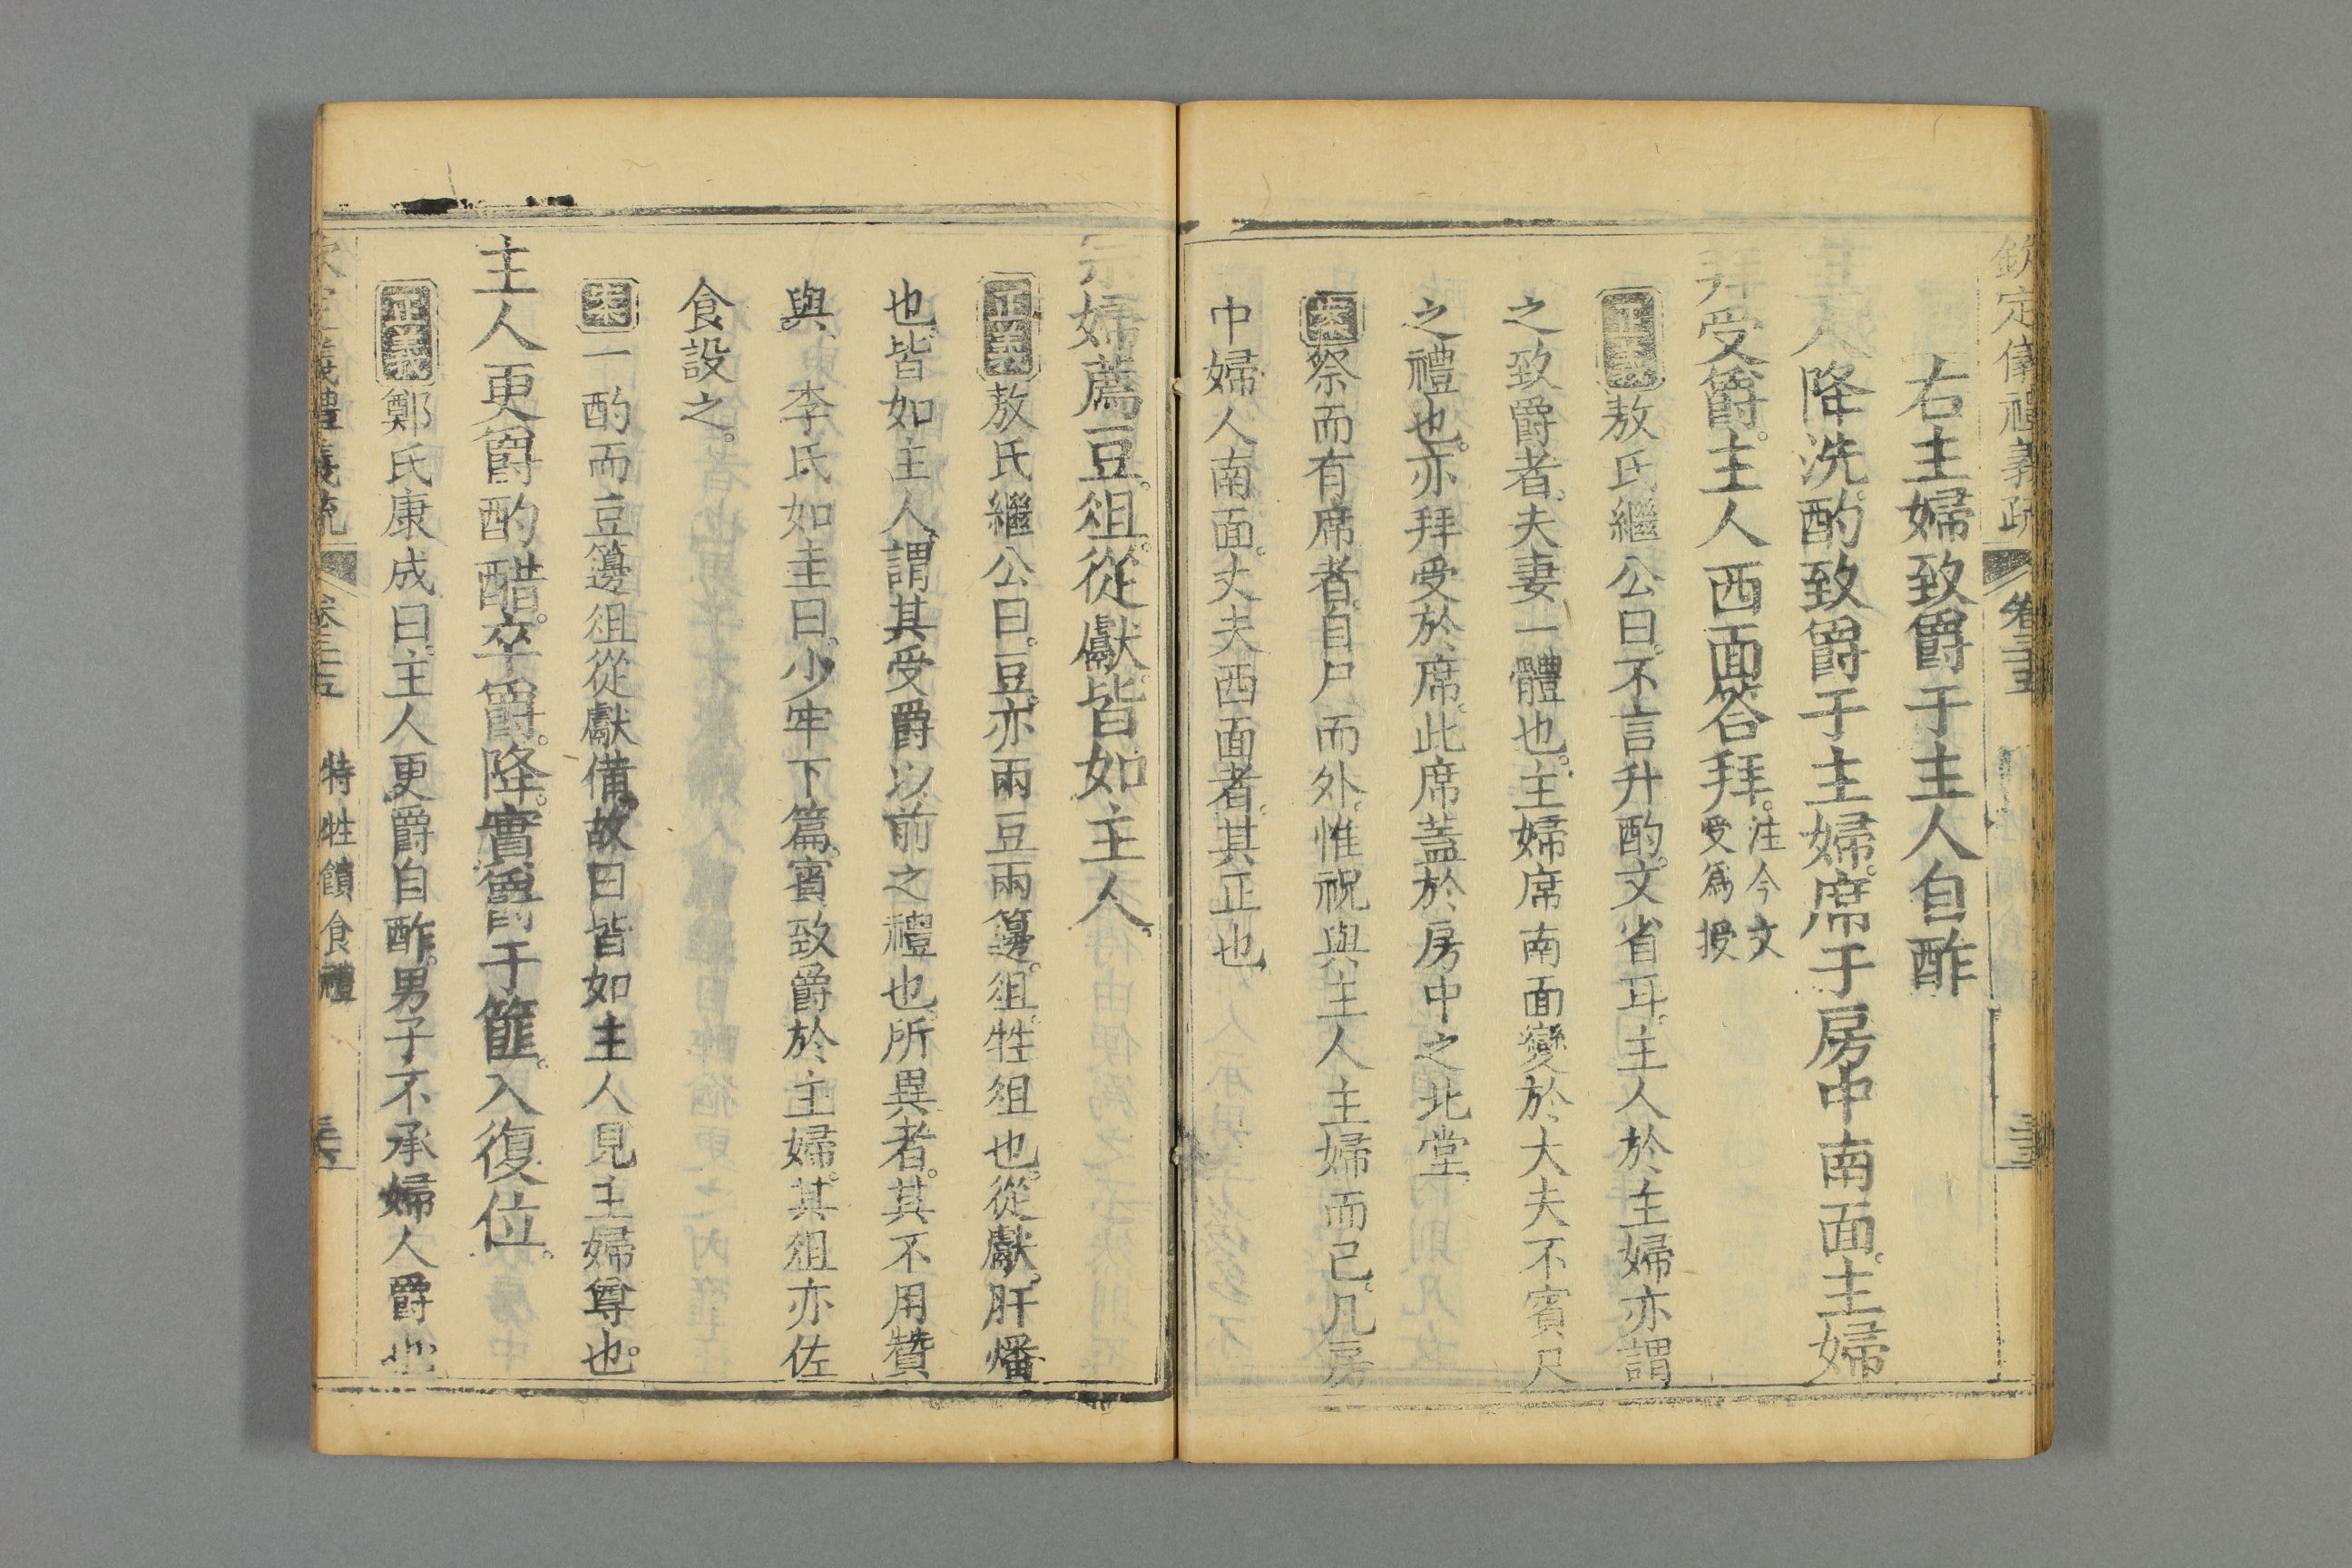 欽定儀禮義疏 卷三十五
右主婦致爵于主人自酢
主人降洗酌致爵于主婦。席于房中南面。主婦
拜受爵。主人西面答拜。注今文
受爲授
正義敖氏繼公曰。不言升酌。文省耳。主人於主婦亦謂
之致爵者。夫妻一體也。主婦席南面變於大夫不賓尸
之禮也。亦拜受於席。此席蓋於房中之北堂
案祭而有席者。自尸而外。惟祝與主人主婦而已。凡房
中婦人南面。丈夫西面者。其正也
宗婦薦豆。俎。從獻。皆如主人
正義敖氏繼公曰。豆。亦兩豆兩籩。俎。牲俎也。從獻。肝燔
也。皆如主人。謂其受爵以前之禮也。所異者。其不用贊
與 李氏如圭曰。少牢下篇。賓致爵於主婦。其俎亦佐
食設之。
案一酌而豆籩俎從獻備。故曰皆如主人。見主婦尊也。
主人更爵酌醋。卒爵。降。實爵于篚。入復位。
正義鄭氏康成曰。主人更爵自酢。男子不承婦人爵也
欽定儀禮義疏 卷三十五 特牲饋食禮